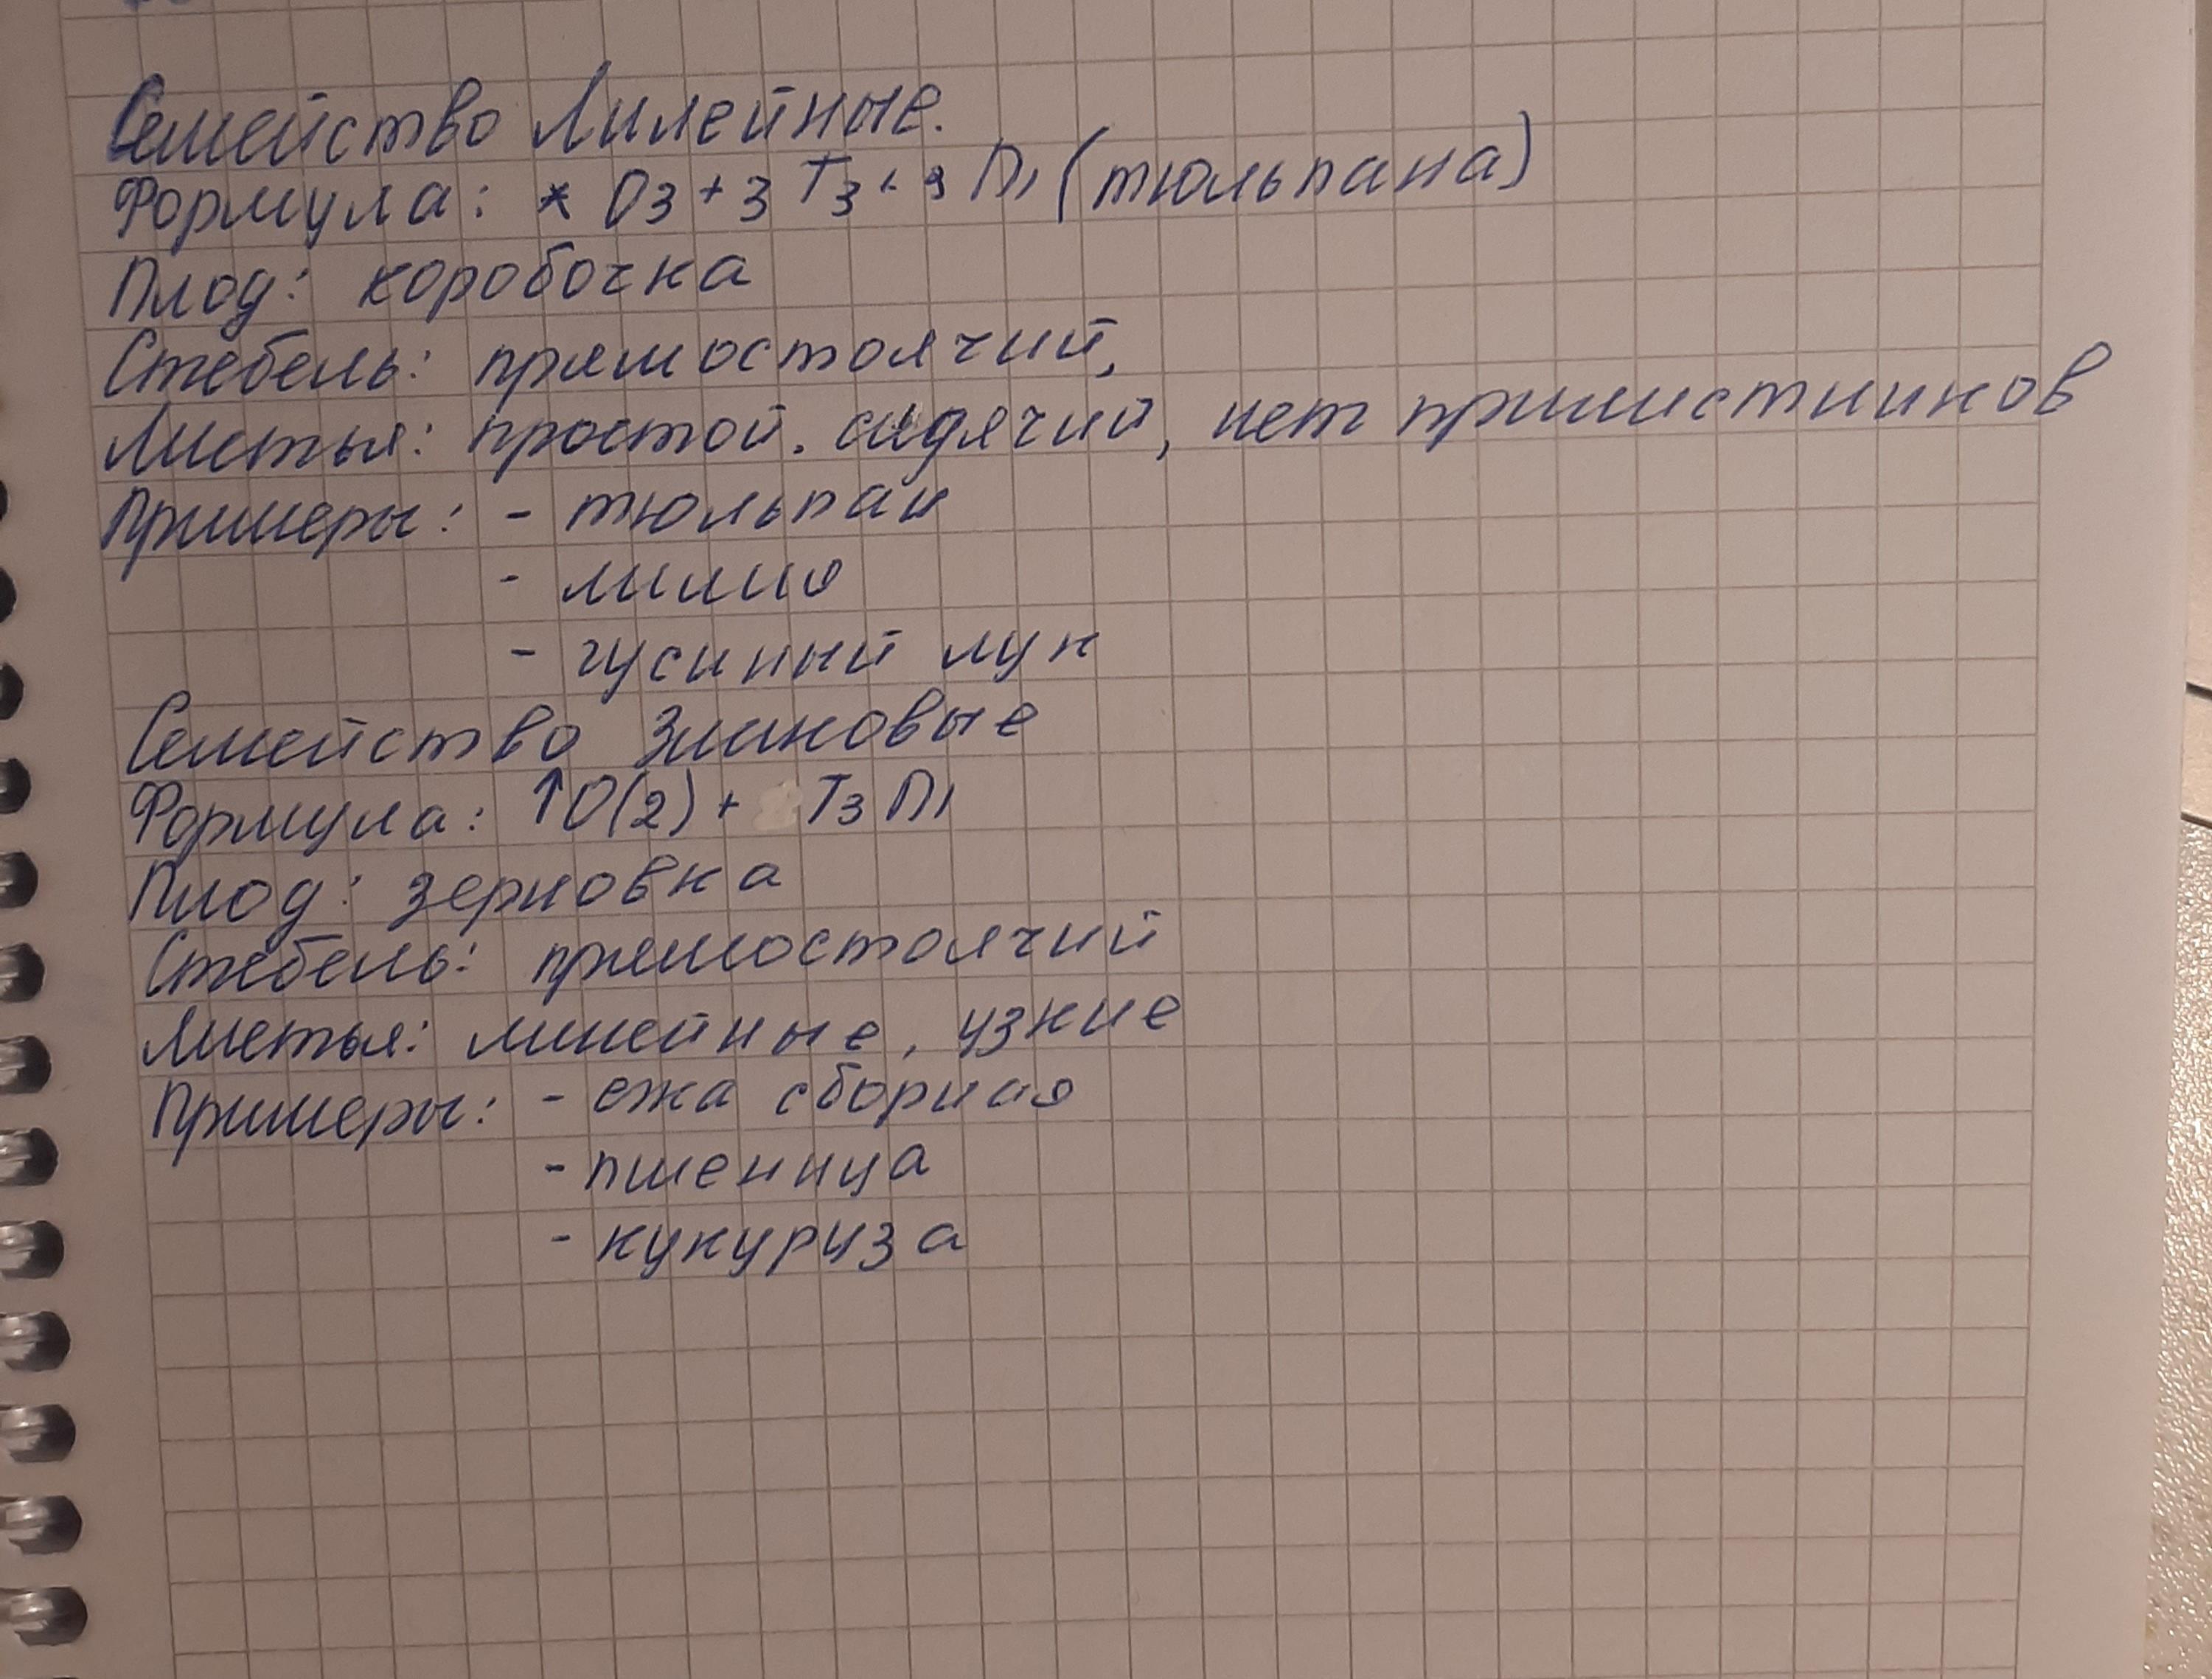 Семейство Лилейные.
Формула: * О3+3 Т3+3 П1 (тюльпана)
Плод: коробочка
Стебель: прямостоячий,
Листья: простой. сидячий, нет прилистников
Примеры: - тюльпан
- лилия
- гусиный лук
Семейство Злаковые
Формула: ↑О(2)+ Т3 П1
Плод: зерновка
Стебель: прямостоячий
Листья: линейные, узкие
Примеры: - ежа сборная
- пшеница
- кукуруза